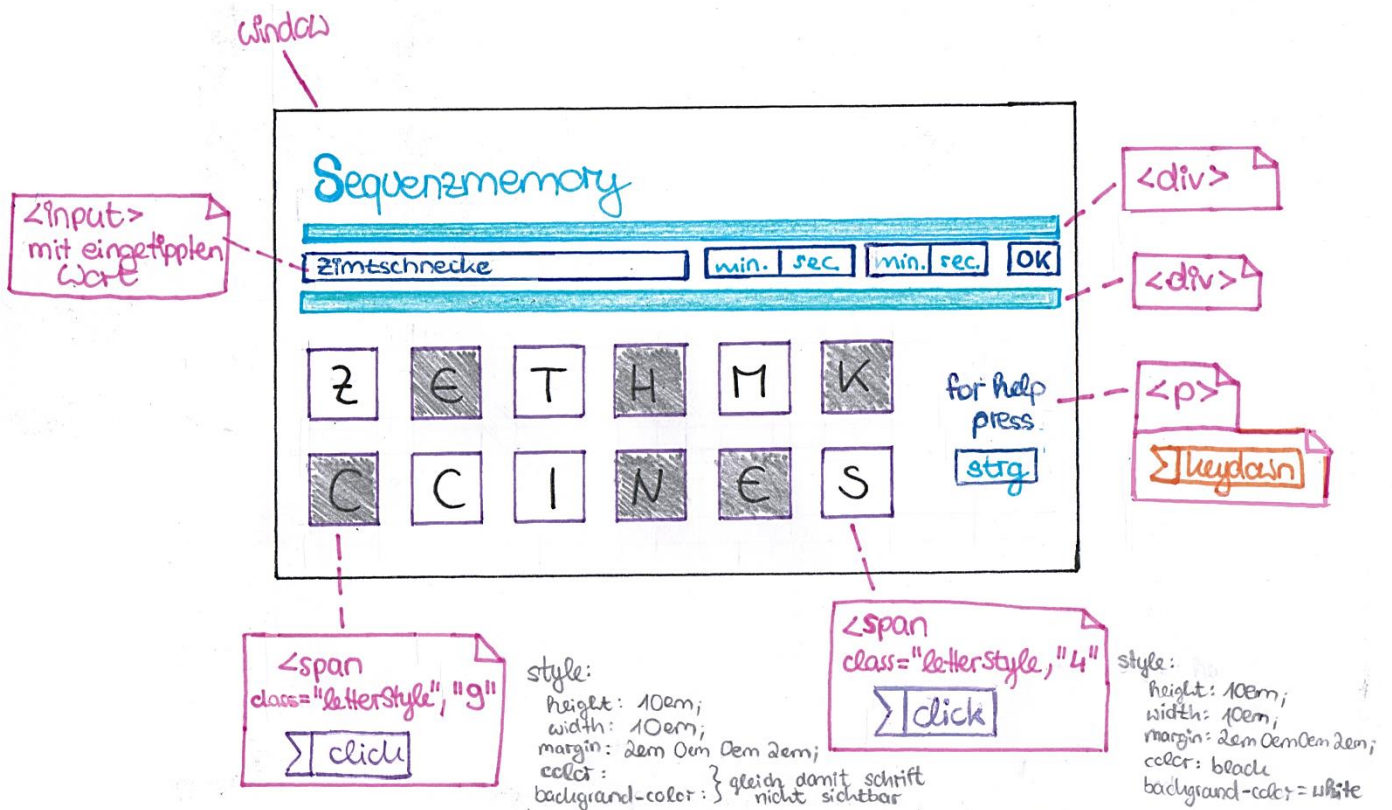 window
Sequenzmemory
<div>
<input>
mit eingetippten
Wort
Zimtschnecke
min. sec.
min. sec.
OK
<div>
Z E T H M K
for help
press
strg
<p>
keydown
C C I N E S
<span
class="letterStyle", "9"
click
style:
height: 10em;
width: 10em;
margin: 2em 0em 0em 2em;
color:
background-color:
} gleich damit schrift
nicht sichtbar
<span
class="letterStyle, "4"
click
style:
height: 10em;
width: 10em;
margin: 2em 0em 0em 2em;
color: black
background-color = white